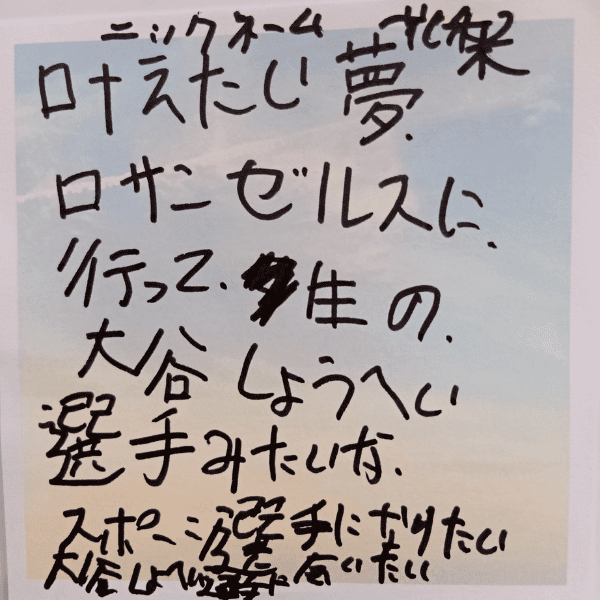 ニックネーム
叶えたい夢.
ロサンゼルスに.
行って.生の.
大谷しょうへい
選手みたいな.
スポーツ選手になりたい
大谷しょうへい選手に会いたい